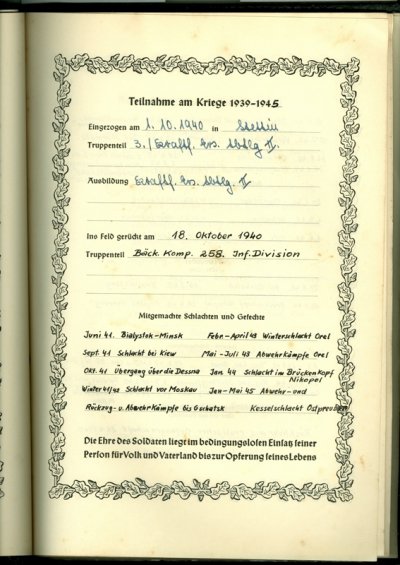 Teilnahme am Kriege 1939-1945
Eingezogen am 1.10.1940 in Stettin
Truppenteil 3./Kraftf. Ers. Abtlg. II.
Ausbildung Kraftf. Ers. Abtlg. II
Ins Feld gerückt am 18. Oktober 1940
Truppenteil Bäck. Komp. 258. Inf. Division
Mitgemachte Schlachten und Gefechte
Juni 41. Bialystok-Minsk Febr.-April 43 Winterschlacht Orel
Sept. 41 Schlacht bei Kiew Mai-Juli 43 Abwehrkämpfe Orel
Okt. 41 Übergang über die Dessna Jan 44 Schlacht im Brückenkopf
Nikopol
Winter 41/42 Schlacht vor Moskau Jan-Mai 45 Abwehr-und
Rückzug-u. Abwehrkämpfe bis Gshatsk Kesselschlacht Ostpreußen
Die Ehre des Soldaten liegt im bedingungslosen Einsatz seiner
Person für Volk und Vaterland bis zur Opferung seines Lebens